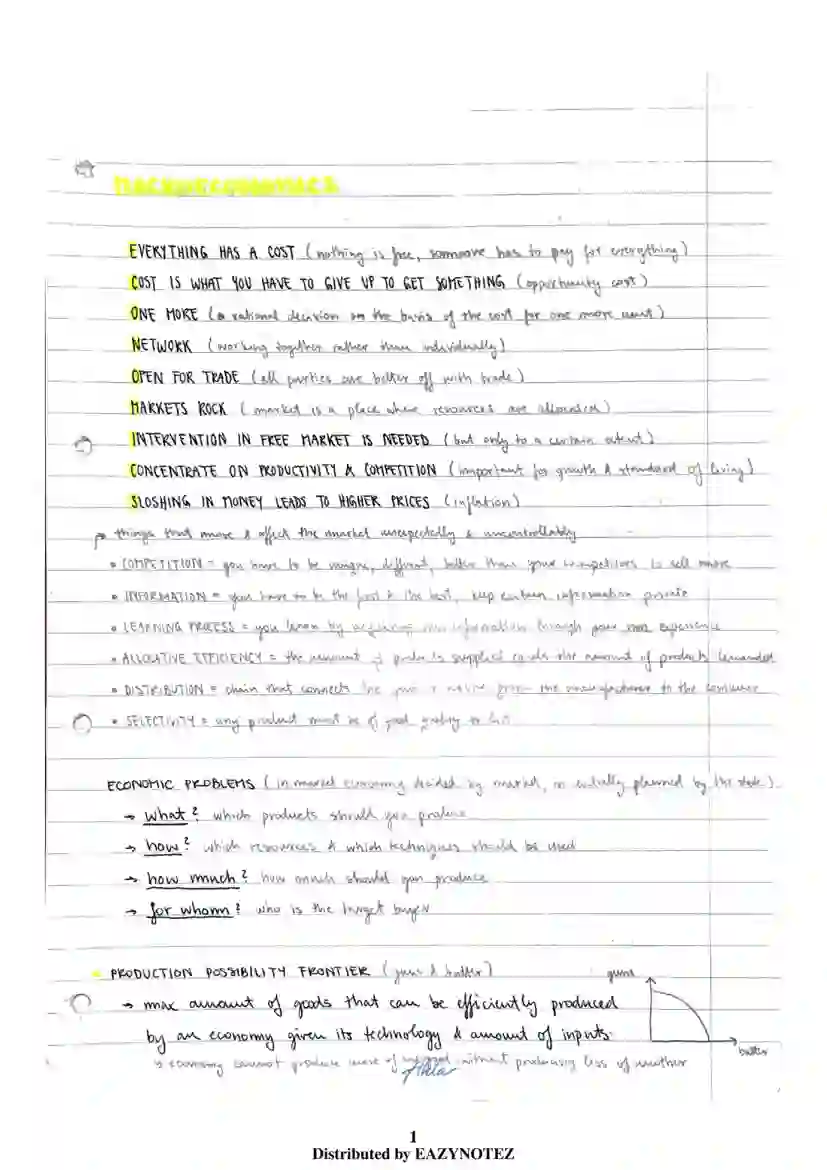 MACROECONOMICS
EVERYTHING HAS A COST (nothing is free, someone has to pay for everything)
COST IS WHAT YOU HAVE TO GIVE UP TO GET SOMETHING (opportunity cost)
ONE MORE (a rational decision on the basis of the cost for one more unit)
NETWORK (working together rather than individually)
OPEN FOR TRADE (all parties are better off with trade)
MARKETS ROCK (market is a place where resources are allocated)
INTERVENTION IN FREE MARKET IS NEEDED (but only to a certain extent)
CONCENTRATE ON PRODUCTIVITY & COMPETITION (important for growth & standard of living)
SLOSHING IN MONEY LEADS TO HIGHER PRICES (inflation)
things that move & affect the market unexpectedly & uncontrollably
• COMPETITION = you have to be unique, different, better than your competitors to sell more
• INFORMATION = you have to be the first & the best, keep certain information private
• LEARNING PROCESS = you learn by acquiring new information through your own experience
• ALLOCATIVE EFFICIENCY = the amount of products supplied equals the amount of products demanded
• DISTRIBUTION = chain that connects the from the manufacturer to the consumer
• SELECTIVITY = any product must be of good quality to
ECONOMIC PROBLEMS (in market economy decided by market, or centrally planned by the state)
→ what? which products should you produce
→ how? which resources & which techniques should be used
→ how much? how much should you produce
→ for whom? who is the target buyer
• PRODUCTION POSSIBILITY FRONTIER (guns & butter)
guns
→ max amount of goods that can be efficiently produced
by an economy given its technology & amount of inputs.
butter
↳ economy cannot produce more of one good without producing less of another
1
Distributed by EAZYNOTEZ